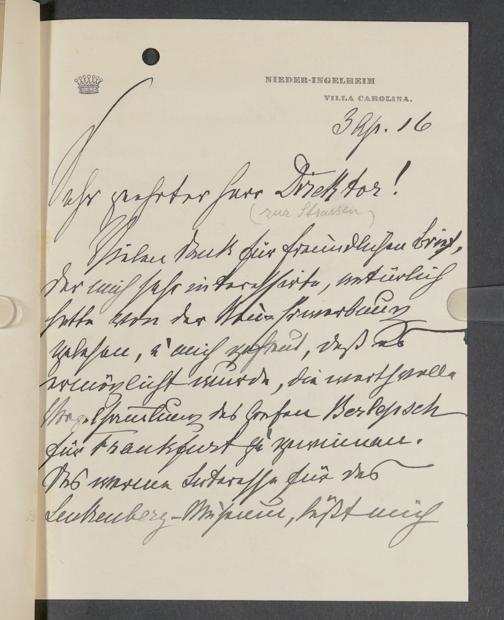 NIEDER-INGELHEIM
VILLA CAROLINA.
3 Ap. 16
Sehr geehrter Herr Direktor!
(zur Strassen)
Vielen Dank für freundlichen Brief,
der mich sehr interessirte, natürlich
hatte von der Neu-Erwerbung
gelesen, u mich gefreut, daß es
ermöglicht wurde, die werthvolle
Vogelsammlung des Grafen Berlepsch
für Frankfurt zu gewinnen.
Das warme Interesse für das
Senkenberg-Museum, läßt mich